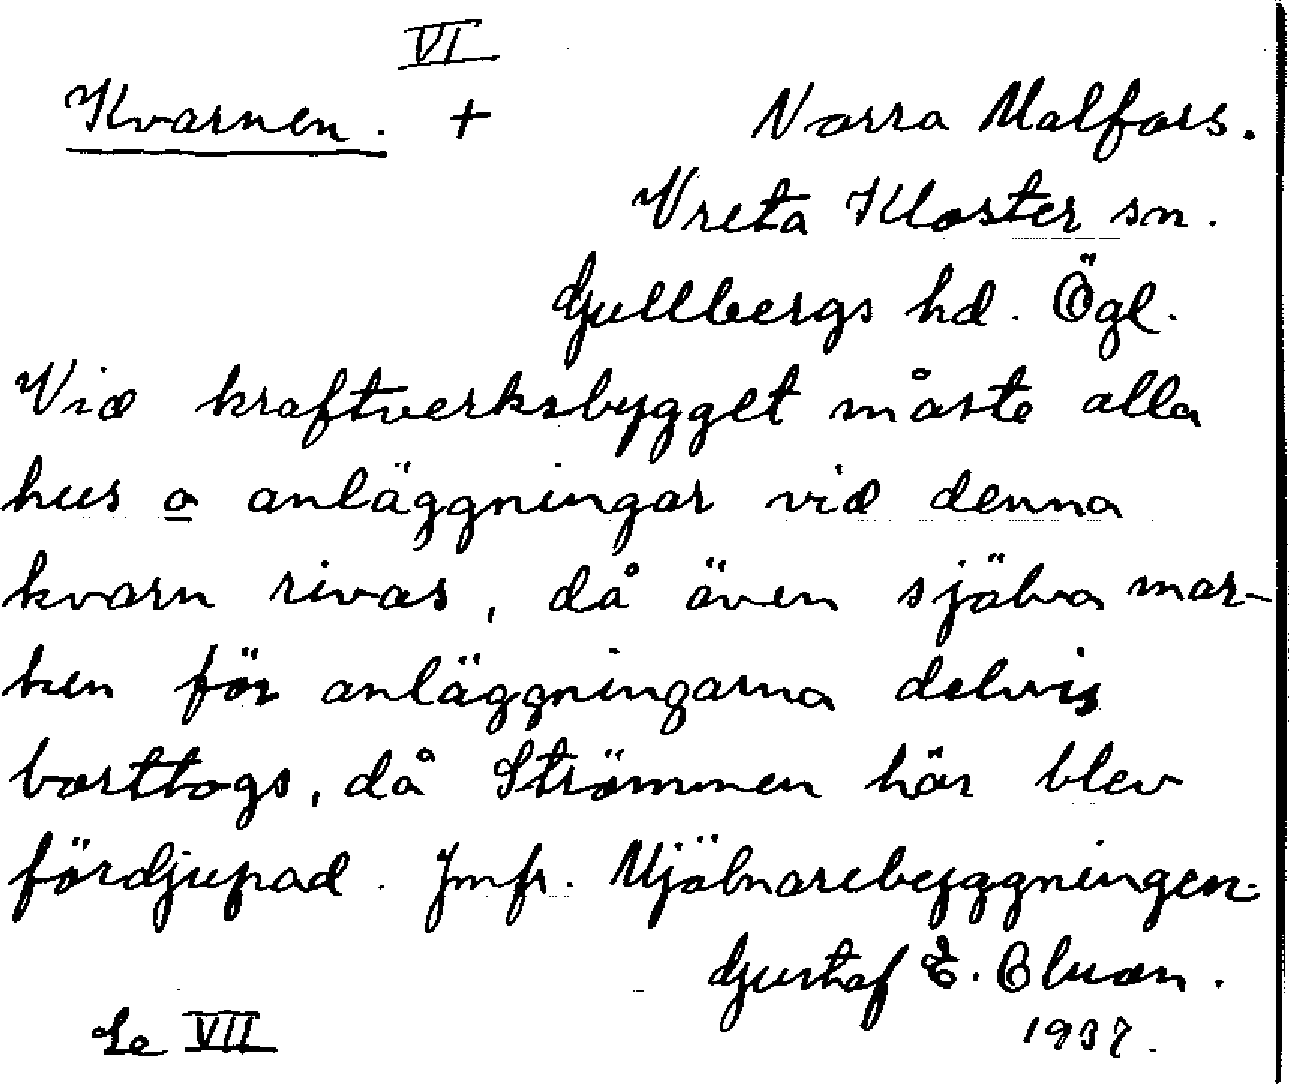 VI
Kvarnen. + Norra Malfors.
Vreta Kloster sn.
Gullbergs hd. Ögl.
Vid kraftverksbygget måste alla
hus o anläggningar vid denna
kvarn rivas, då även själva mar-
ken för anläggningarna delvis
borttogs, då Strömmen här blev
fördjupad. Jmfr. Mjölnarebyggningen.
Gustaf E.
Se VII 1937.